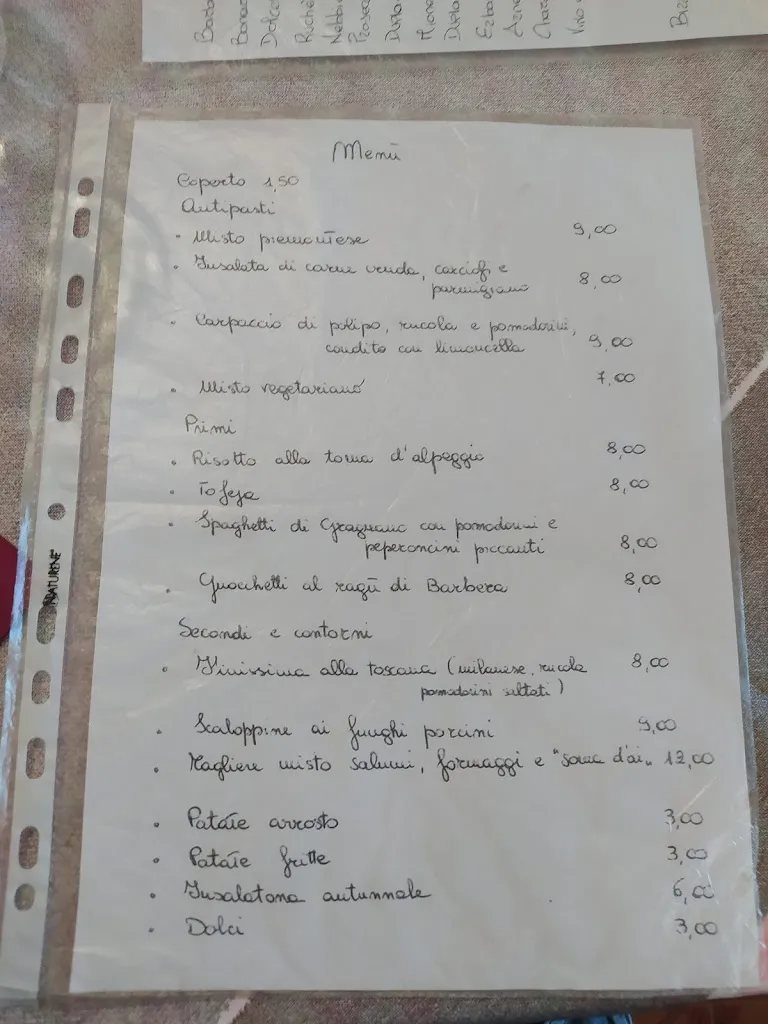 Menù
Coperto 1,50
Antipasti
• Misto piemontese 9,00
• Insalata di carne cruda, carciofi e
parmigiano 8,00
• Carpaccio di polipo, rucola e pomodorini,
condito con limoncella 9,00
• Misto vegetariano 7,00
Primi
• Risotto alla toma d'alpeggio 8,00
• Tofeja 8,00
• Spaghetti di Gragnano con pomodorini e
peperoncini piccanti 8,00
• Gnocchetti al ragù di Barbera 8,00
Secondi e contorni
• Finissima alla toscana (milanese, rucola
pomodorini saltati) 8,00
• Scaloppine ai funghi porcini 9,00
• Tagliere misto salumi, formaggi e "soma d'ai" 12,00
• Patate arrosto 3,00
• Patate fritte 3,00
• Insalatona autunnale 6,00
• Dolci 3,00